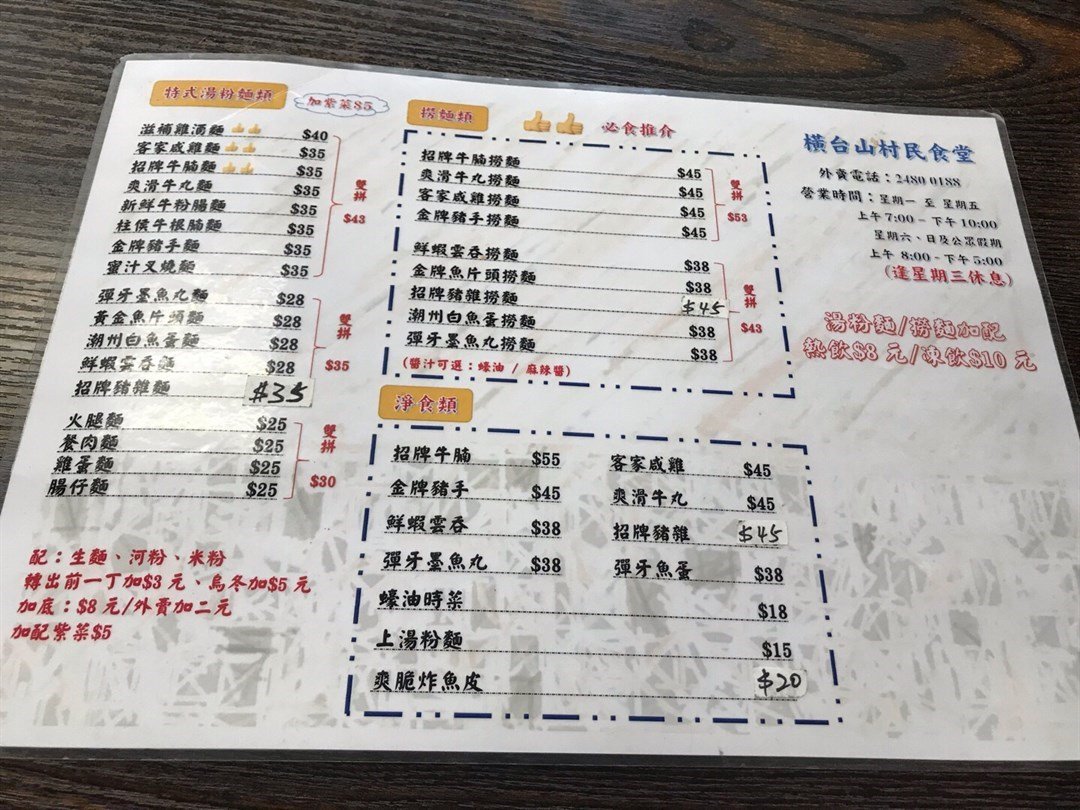 特式湯粉麵類
加紫菜$5
滋補雞酒麵 $40
客家咸雞麵 $35
招牌牛腩麵 $35
爽滑牛丸麵 $35
新鮮牛粉腸麵 $35
柱侯牛根腩麵 $35
金牌豬手麵 $35
蜜汁叉燒麵 $35
雙拼
$43
彈牙墨魚丸麵 $28
黃金魚片頭麵 $28
潮州白魚蛋麵 $28
鮮蝦雲吞麵 $28
招牌豬雜麵 $35
雙拼
$35
火腿麵 $25
餐肉麵 $25
雞蛋麵 $25
腸仔麵 $25
雙拼
$30
配：生麵、河粉、米粉
轉出前一丁加$3 元、烏冬加$5 元
加底：$8 元/外賣加二元
加配紫菜$5
撈麵類
必食推介
招牌牛腩撈麵 $45
爽滑牛丸撈麵 $45
客家咸雞撈麵 $45
金牌豬手撈麵 $45
雙拼
$53
鮮蝦雲吞撈麵 $38
金牌魚片頭撈麵 $38
招牌豬雜撈麵 $45
潮州白魚蛋撈麵 $38
彈牙墨魚丸撈麵 $38
雙拼
$43
(醬汁可選：蠔油 / 麻辣醬)
淨食類
招牌牛腩 $55
客家咸雞 $45
金牌豬手 $45
爽滑牛丸 $45
鮮蝦雲吞 $38
招牌豬雜 $45
彈牙墨魚丸 $38
彈牙魚蛋 $38
蠔油時菜 $18
上湯粉麵 $15
爽脆炸魚皮 $20
橫台山村民食堂
外賣電話：2480 0188
營業時間：星期一 至 星期五
上午 7:00 - 下午 10:00
星期六、日及公眾假期
上午 8:00 - 下午 5:00
(逢星期三休息)
湯粉麵/撈麵加配
熱飲$8 元/凍飲$10 元